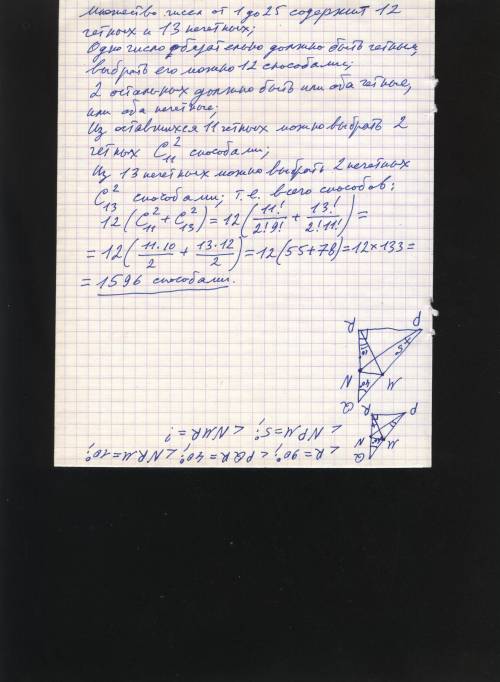 Множество чисел от 1 до 25 содержит 12
четных и 13 нечетных;
Одно число обязательно должно быть четным,
выбрать его можно 12 способами;
2 остальных должно быть или оба четные,
или оба нечетные;
Из оставшихся 11 четных можно выбрать 2
четных C₁₁² способами;
Из 13 нечетных можно выбрать 2 нечетных
C₁₃² способами; т.е. всего способов:
12(C₁₁² + C₁₃²) = 12(11!/2!9! + 13!/2!11!) =
= 12(11·10/2 + 13·12/2) = 12(55+78) = 12×133 =
= 1596 способами.
< R = 90°; < PQR = 40°; < NRM = 10°;
< NPM = 5°; < NMR = ?
Q
N M
R P
Q
40°
N M
10° 5°
R P